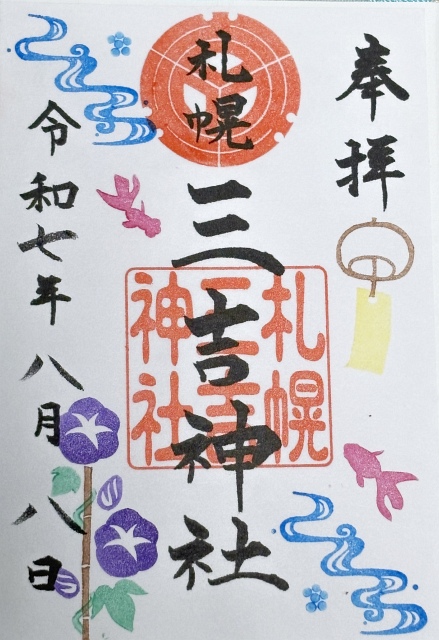 奉拝
札幌
三吉神社
札幌
三吉
神社
令和七年八月八日